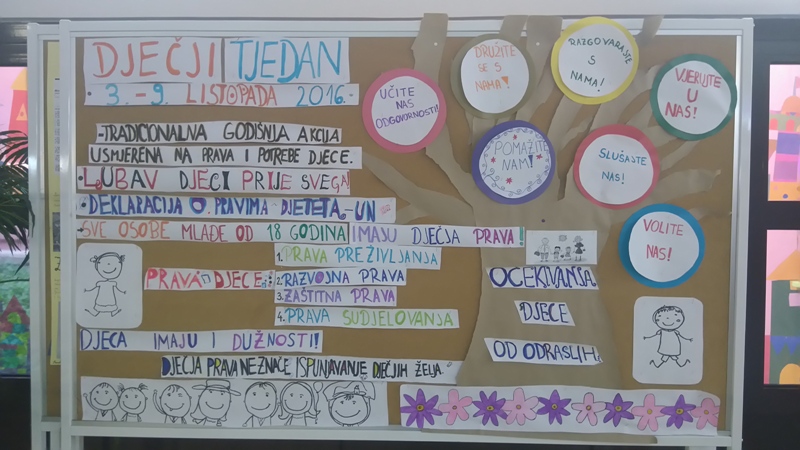 DJEČJI TJEDAN
3.-9. LISTOPADA 2016.-
-TRADICIONALNA GODIŠNJA AKCIJA
USMJERENA NA PRAVA I POTREBE DJECE.
LJUBAV DJECI PRIJE SVEGA
-DEKLARACIJA O PRAVIMA DJETETA-UN
SVE OSOBE MLAĐE OD 18 GODINA IMAJU DJEČJA PRAVA!
PRAVA DJECE:
1. PRAVA PREŽIVLJANJA
2. RAZVOJNA PRAVA
3. ZAŠTITNA PRAVA
4. PRAVA SUDJELOVANJA
DJECA IMAJU I DUŽNOSTI!
DJEČJA PRAVA NE ZNAČE ISPUNJAVANJE DJEČJIH ŽELJA.
UČITE
NAS
ODGOVORNOSTI!
DRUŽITE
SE S
NAMA!
RAZGOVARAJTE
S
NAMA!
VJERUJTE
U
NAS!
POMAŽITE
NAM!
SLUŠAJTE
NAS!
VOLITE
NAS!
OČEKIVANJA
DJECE
OD ODRASLIH